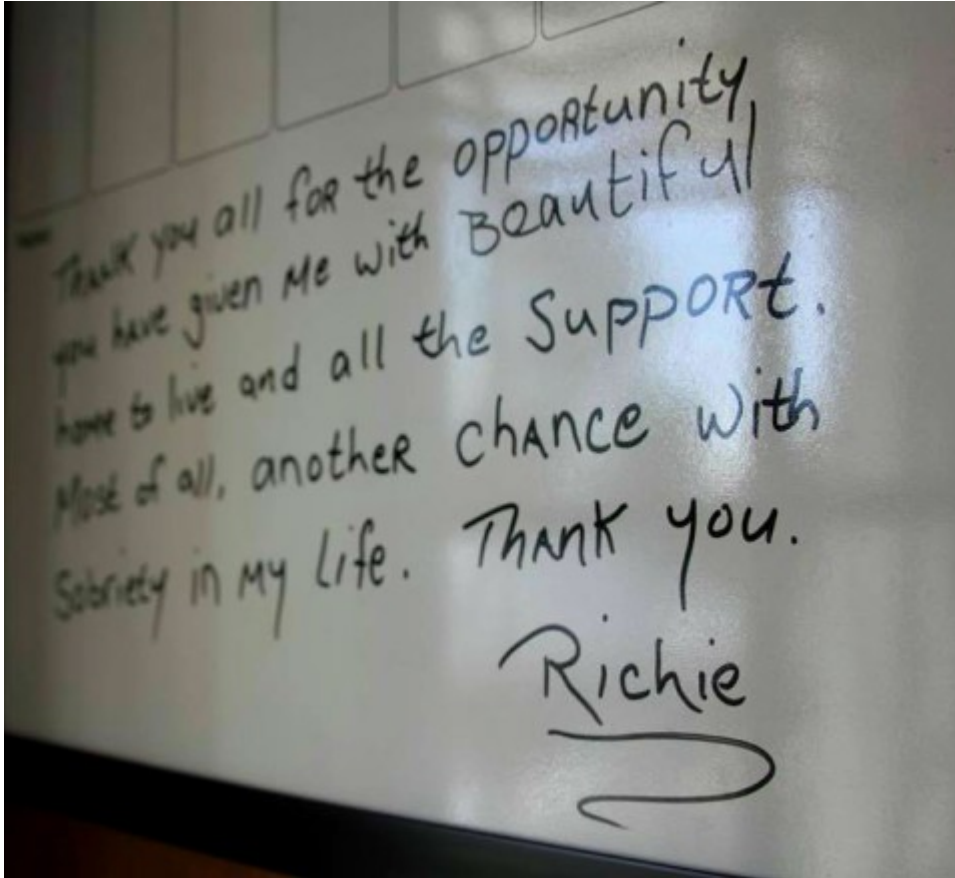 Thank you all for the opportunity
you have given me with Beautiful
home to live and all the Support.
Most of all, another chance with
Sobriety in my life. Thank you.
Richie